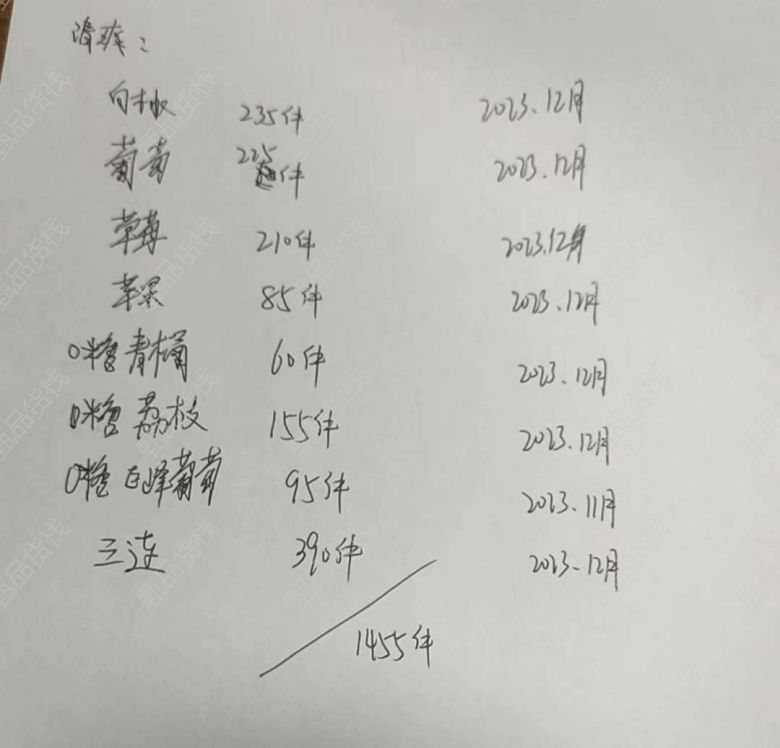 白桃 235件 2023.12月
葡萄 225件 2023.12月
草莓 210件 2023.12月
苹果 85件 2023.12月
0糖青橘 60件 2023.12月
0糖荔枝 155件 2023.12月
0糖巨峰葡萄 95件 2023.11月
三连 390件 2023.12月
1455件
甄品货栈